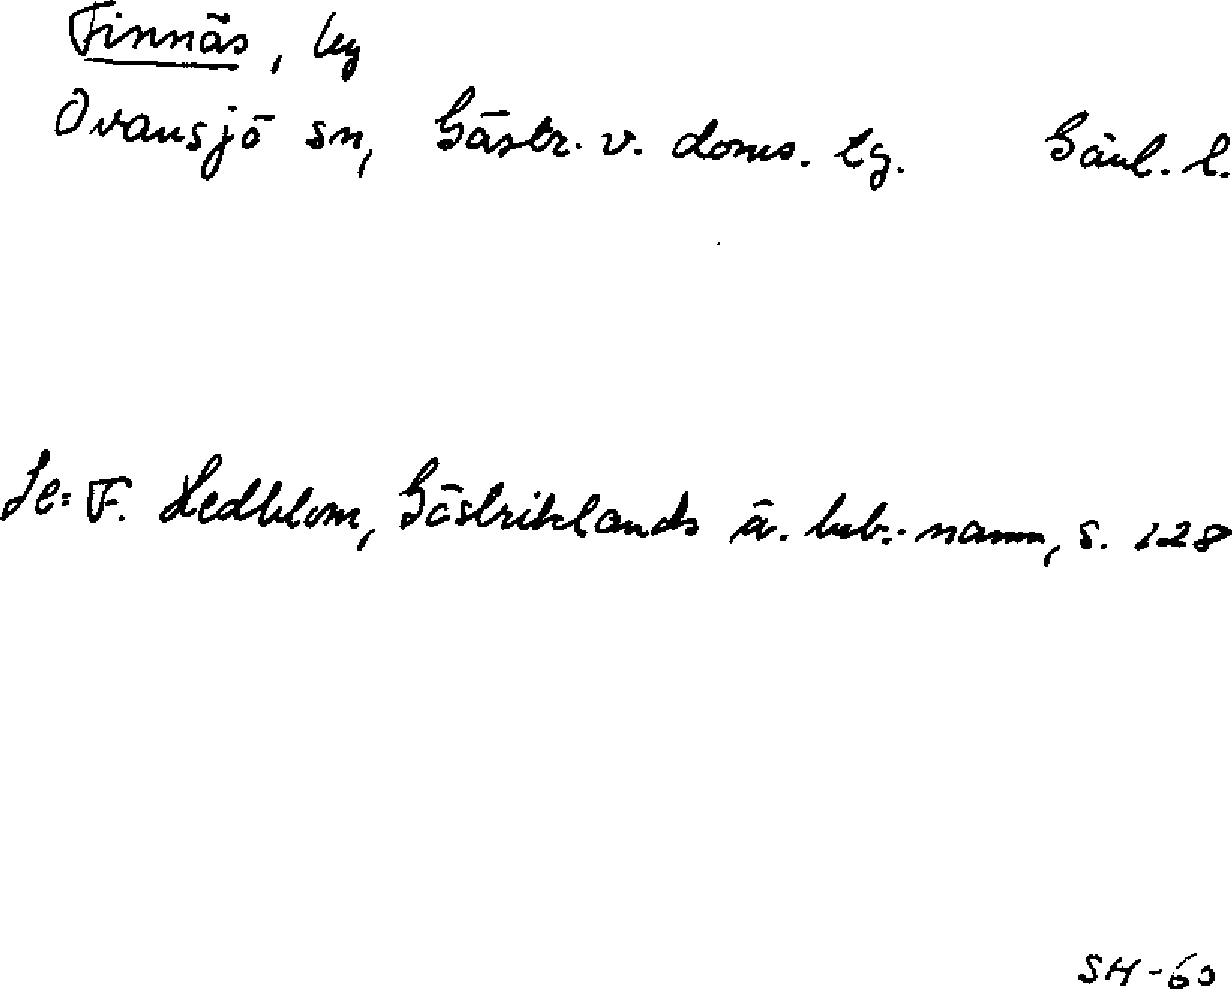 Finnäs, by
Ovansjö sn, Gästr. v. doms. tg. Gävl. l.
Se: F. Hedblom, Gästriklands ä. beb.-namn, s. 128
SH-60